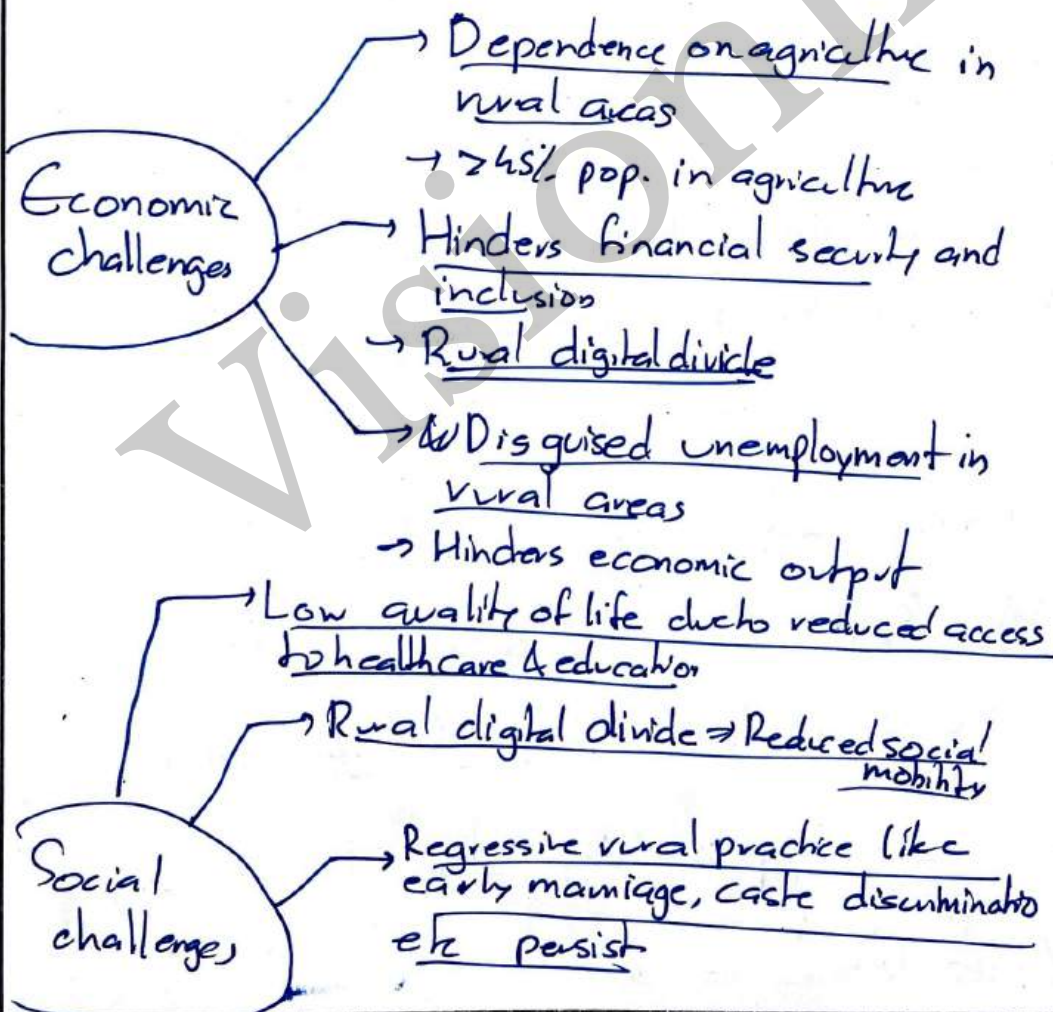 Economic
challenges
→ Dependence on agriculture in
rural areas
→ >45% pop. in agriculture
→ Hinders financial security and
inclusion
→ Rural digital divide
→ Disguised unemployment in
rural areas
→ Hinders economic output
Social
challenges
→ Low quality of life due to reduced access
to healthcare & education
→ Rural digital divide ⇒ Reduced social
mobility
→ Regressive rural practice like
early marriage, caste discriminatio
etc persist
Vision